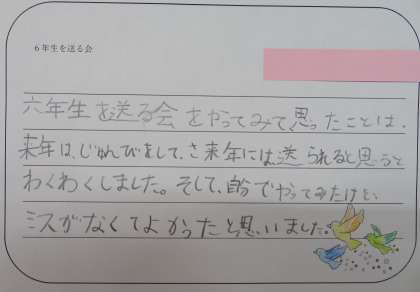 6年生を送る会
六年生を送る会をやってみて思ったことは、
来年は、じゅんびをして、さ来年には送られると思うと
わくわくしました。そして、自分でやってみたけど、
ミスがなくてよかったと思いました。